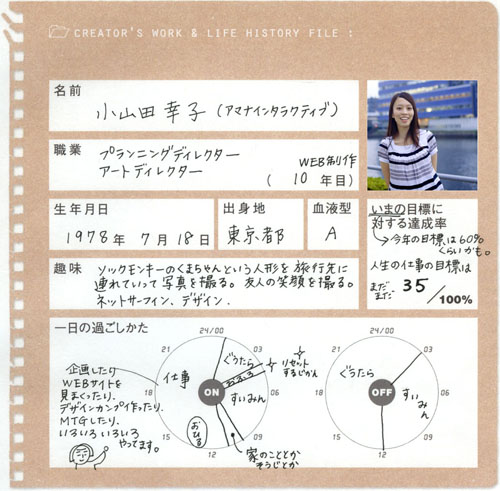 CREATOR'S WORK & LIFE HISTORY FILE :
名前
小山田幸子(アマナインタラクティブ)
職業
プランニングディレクター
アートディレクター
WEB制作
( 10 年目)
生年月日
1978年 7月18日
出身地
東京都
血液型
A
いまの目標に
対する達成率
→今年の目標は60%
くらいかも。
人生の仕事の目標は
まだまだ 35/100%
趣味
ソックモンキーのくまちゃんという人形を旅行先に
連れていって写真を撮る。友人の笑顔を撮る。
ネットサーフィン、デザイン.
一日の過ごしかた
24/00
21
03
18
06
15
09
12
ON
仕事
ぐうたら
おふろ
すいみん
おひる
リセット
するじかん
家のこととか
そうじとか
企画したり
WEBサイトを
見まくったり、
デザインカンプ作ったり、
MTGしたり、
いろいろ いろいろ
やってます。
24/00
21
03
18
06
15
09
12
OFF
ぐうたら
すいみん